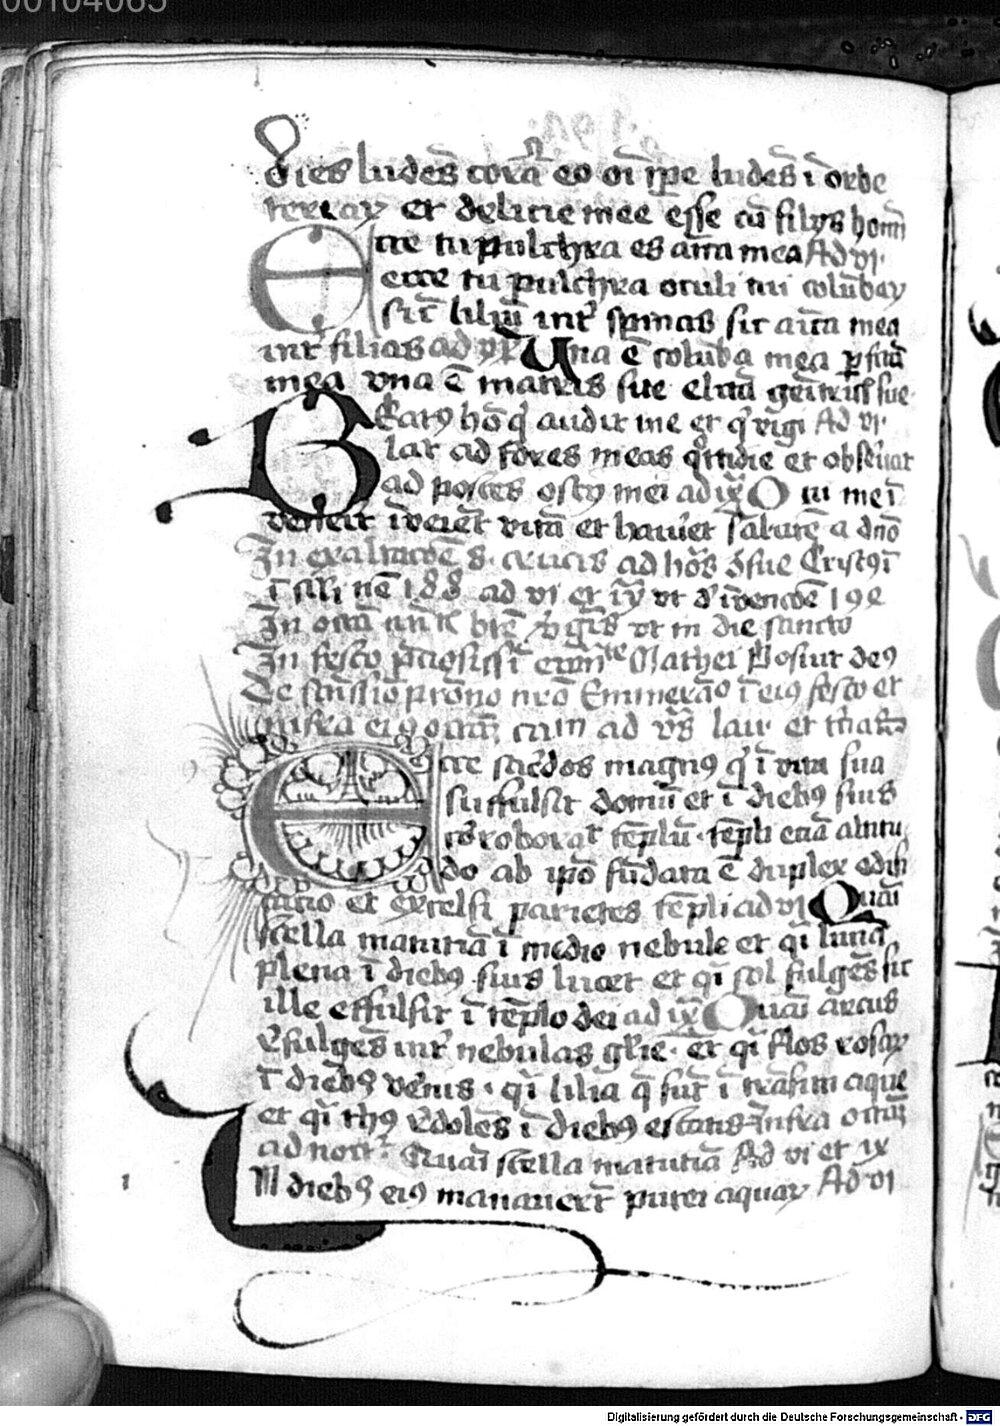 00104065
dies ludēs corā eo oī tpe ludēs ī orbe
terraꝝ et delicie mee esse cū filijs homī
Ecce tu pulchra es amica mea Ad vi
ecce tu pulchra oculi tui columbaꝝ
sic̄ liliū int̄ spinas sic amica mea
int̄ filias ad ix Una ē columba mea ꝑfca
mea vna ē matris sue electa genitricis sue
Beatꝰ hō qͥ audit me et qͥ vigi Ad vi
lat ad fores meas qͦtidie et obseruat
ad postes ostij mei ad ix Qui me ī
venerit īveiet vitā et hauriet salutē a dno
In exaltacōe s. crucis ad hōs
ī īvencōe 192
In octa btē vgīs vt in die sancto
In festo Mathei Posuit deꝰ
De pronō nro Emmeramo ī eiꝰ festo et
infra eiꝰ octauā ad vs lau et
Ecce sacerdos magnꝰ qͥ ī vita sua
suffulsit domū et ī diebꝰ suis
corroborat tēplū tēpli eciā altitu
do ab ipo fūdata ē duplex edifi
catio et excelsi parietes tēpli ad vi Quasi
stella matutīa ī medio nebule et qͣi luna
plena ī diebꝰ suis lucet et qͣi sol fulgēs sic
ille effulsit ī tēplo dei ad ix Quasi arcus
refulgēs int̄ nebulas glie et qͣi flos rosaꝝ
ī diebꝰ vernis qͣi lilia q̄ sūt ī trāsitu aque
et qͣi thus redolēs ī diebꝰ estatis Infra octauā
ad noct Quasi stella matutīa Ad vi et ix
In diebꝰ eiꝰ manauerūt putei aquaꝝ Ad vi
Digitalisierung gefördert durch die Deutsche Forschungsgemeinschaft - DFG